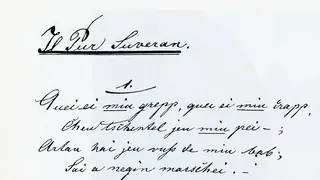 Il Pur Suveran.
1.
Quei ei miu grepp, quei ei miu crapp,
Cheu tschentel jeu miu pei –;
Artau hai jeu vuß de miu bab;
Sai a negin marschei. –